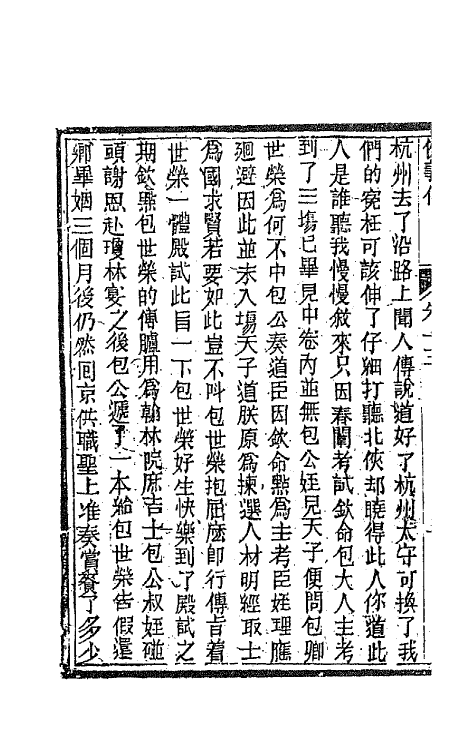 杭州去了沿路上聞人傳說道好了杭州太守可換了我
們的寃枉可該伸了仔細打聽北俠却曉得此人你道此
人是誰聽我慢慢敘來只因春闈考試欽命包大人主考
到了三塲已畢見中卷內並無包公姪兒天子便問包卿
世榮爲何不中包公奏道臣因欽命點爲主考臣姪理應
廻避因此並未入塲天子道朕原爲揀選人材明經取士
爲國求賢若要如此豈不呌包世榮抱屈麽卽行傳旨着
世榮一體殿試此旨一下包世榮好生快樂到了殿試之
期欽點包世榮的傳臚用爲翰林院庶吉士包公叔姪碰
頭謝恩赴瓊林宴之後包公遞了一本給包世榮告假還
鄉畢姻三個月後仍然囘京供職聖上准奏賞賚了多少